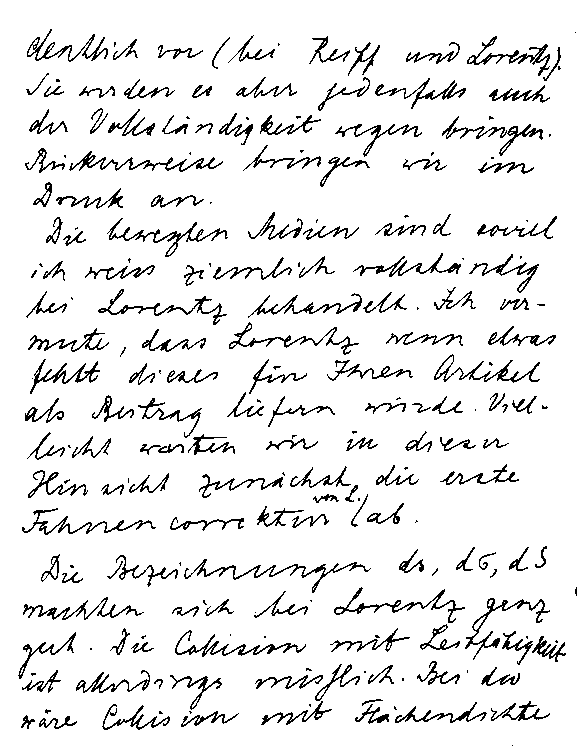 dentlich vor (bei Reiff und Lorentz).
Sie werden es aber jedenfalls auch
der Vollständigkeit wegen bringen.
Rückverweise bringen wir im
Druck an.
Die bewegten Medien sind soviel
ich weiss ziemlich vollständig
bei Lorentz behandelt. Ich ver-
mute, dass Lorentz wenn etwas
fehlt dieses für Ihren Artikel
als Beitrag liefern würde. Viel-
leicht warten wir in dieser
Hinsicht zunächst die erste
Fahnencorrektur von L. ab.
Die Bezeichnungen ds, dσ, dS
machten sich bei Lorentz ganz
gut. Die Collision mit Leitfähigkeit
ist allerdings misslich. Bei
wäre Collision mit Flächendichte